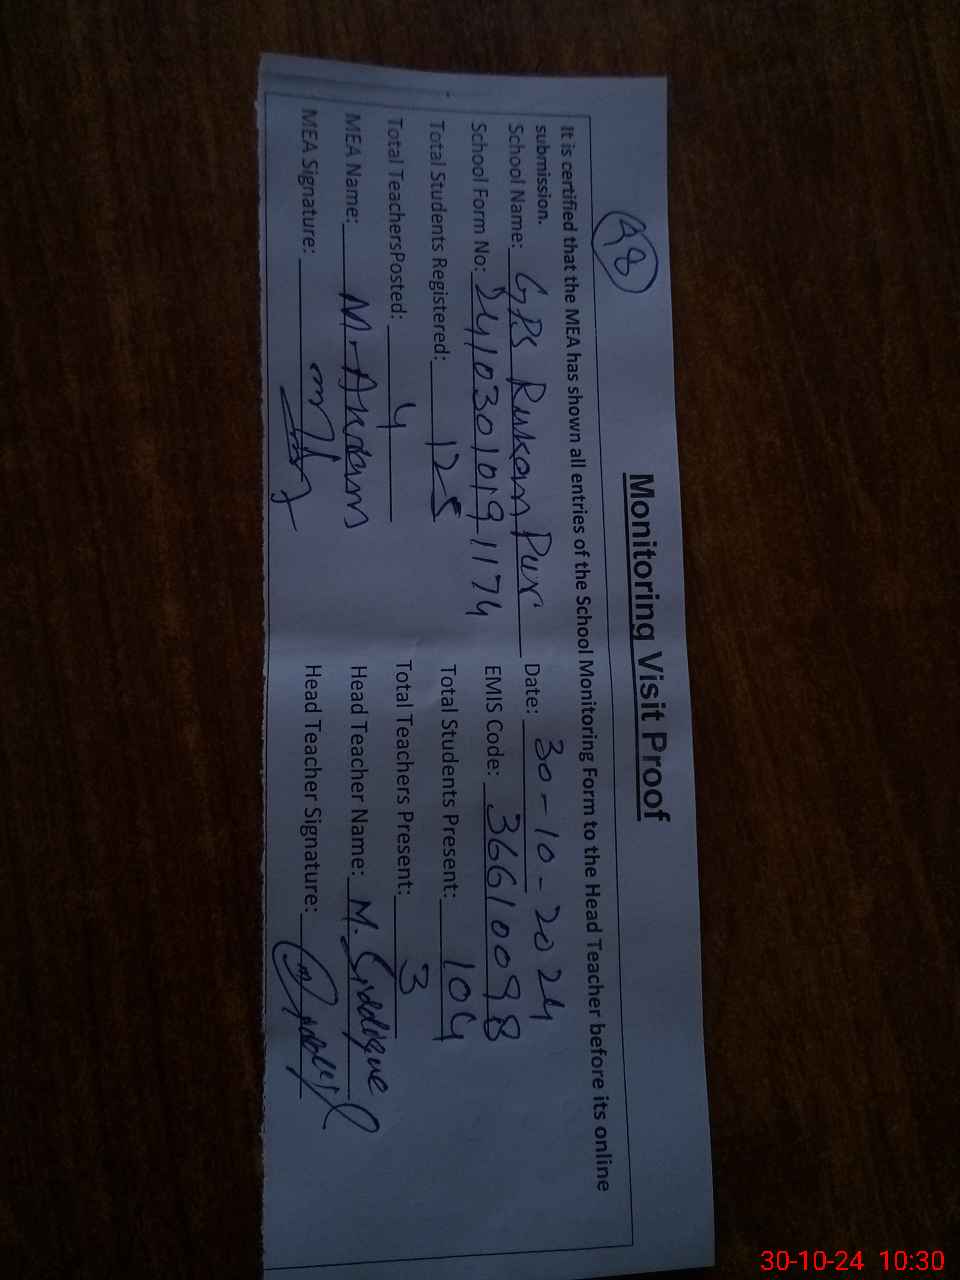 Monitoring Visit Proof
48
It is certified that the MEA has shown all entries of the School Monitoring Form to the Head Teacher before its online
submission.
School Name: GPS Rukan Pur Date: 30-10-2024
School Form No: 24103010191174 EMIS Code: 36610098
Total Students Registered: 125 Total Students Present: 104
Total TeachersPosted: 4 Total Teachers Present: 3
MEA Name: M- Akram Head Teacher Name: M. Siddique
MEA Signature: Head Teacher Signature:
30-10-24 10:30